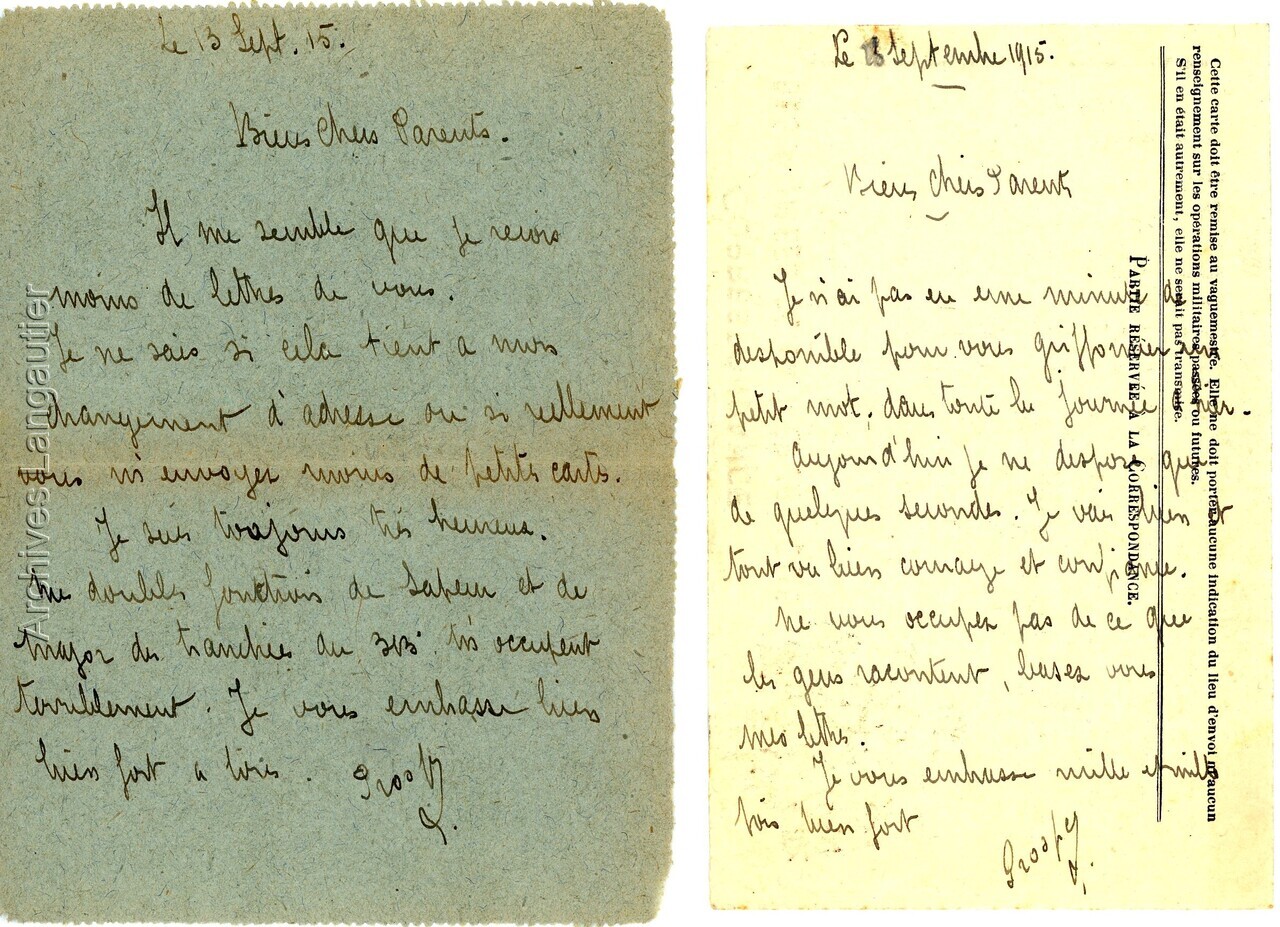 Le 13 Sept. 15.
Biens Chers Parents.
Il me semble que je reçois
moins de lettres de vous.
Je ne sais si cela tient a mon
changement d'adresse ou si reellement
vous m'envoyez moins de petits cartes.
Je suis toujours très heureux.
Me doubles fonctions de Sapeur et de
major des tranchées du 313 très occupent
terriblement. Je vous embrasse bien
bien fort a tous.
Archives Langautier
Le 13 Septembre 1915.
Biens Chers Parents
Je n'ai pas eu une minute de
disponible pour vous griffonner un
petit mot, dans toute la journée hier.
Aujourd'hui je ne dispose que
de quelques secondes. Je vais bien et
tout va bien courage et confiance.
Ne vous occupez pas de ce que
les gens racontent, basez vous
mes lettres.
Je vous embrasse mille et mille
fois bien fort
PARTIE RÉSERVÉE A LA CORRESPONDANCE.
S'il en était autrement, elle ne serait pas transmise.
renseignement sur les opérations militaires passées ou futures.
Cette carte doit être remise au vaguemestre. Elle ne doit porter aucune indication du lieu d'envoi ni aucun